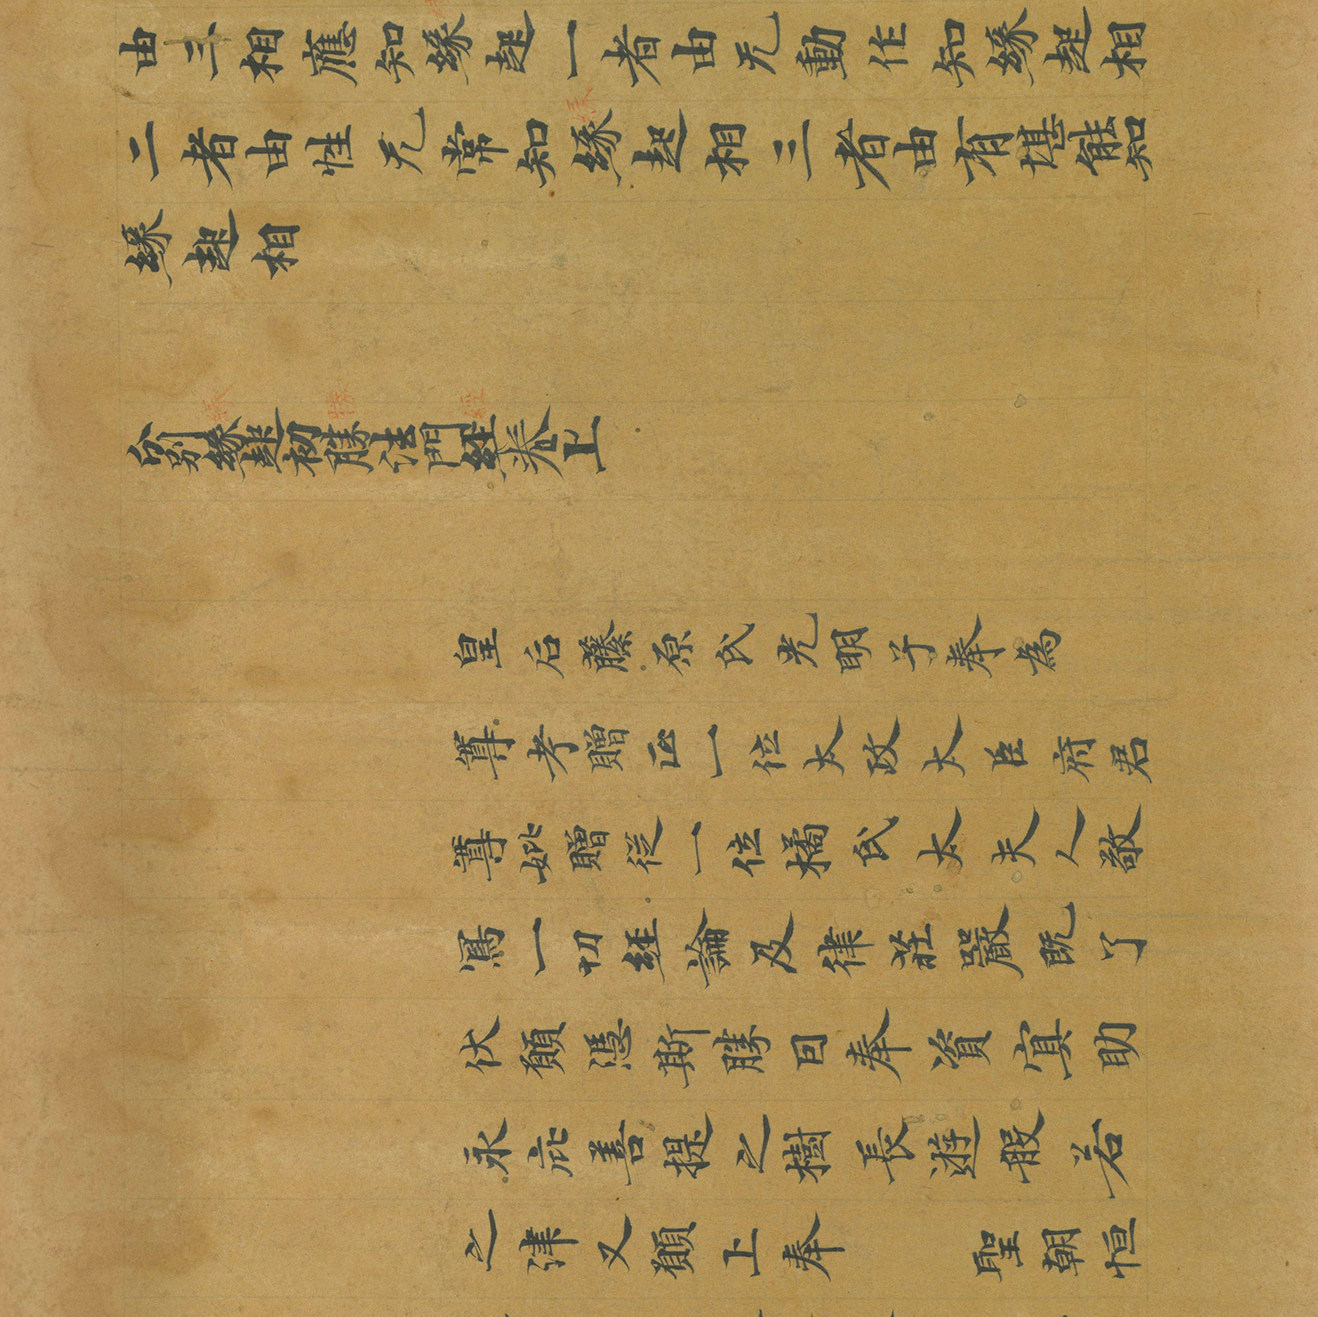 由三相應知緣起一者由无動作知緣起相
二者由性无常知緣起相三者由有堪能知
緣起相
分別緣起初勝法門經卷上
皇后藤原氏光明子奉為
尊考贈正一位太政太臣府君
尊妣贈従一位橘氏太夫人敬
寫一切經論及律莊嚴既了
伏願憑斯勝因奉資冥助
永庇菩提之樹長遊般若
之津又願上奉 聖朝恒